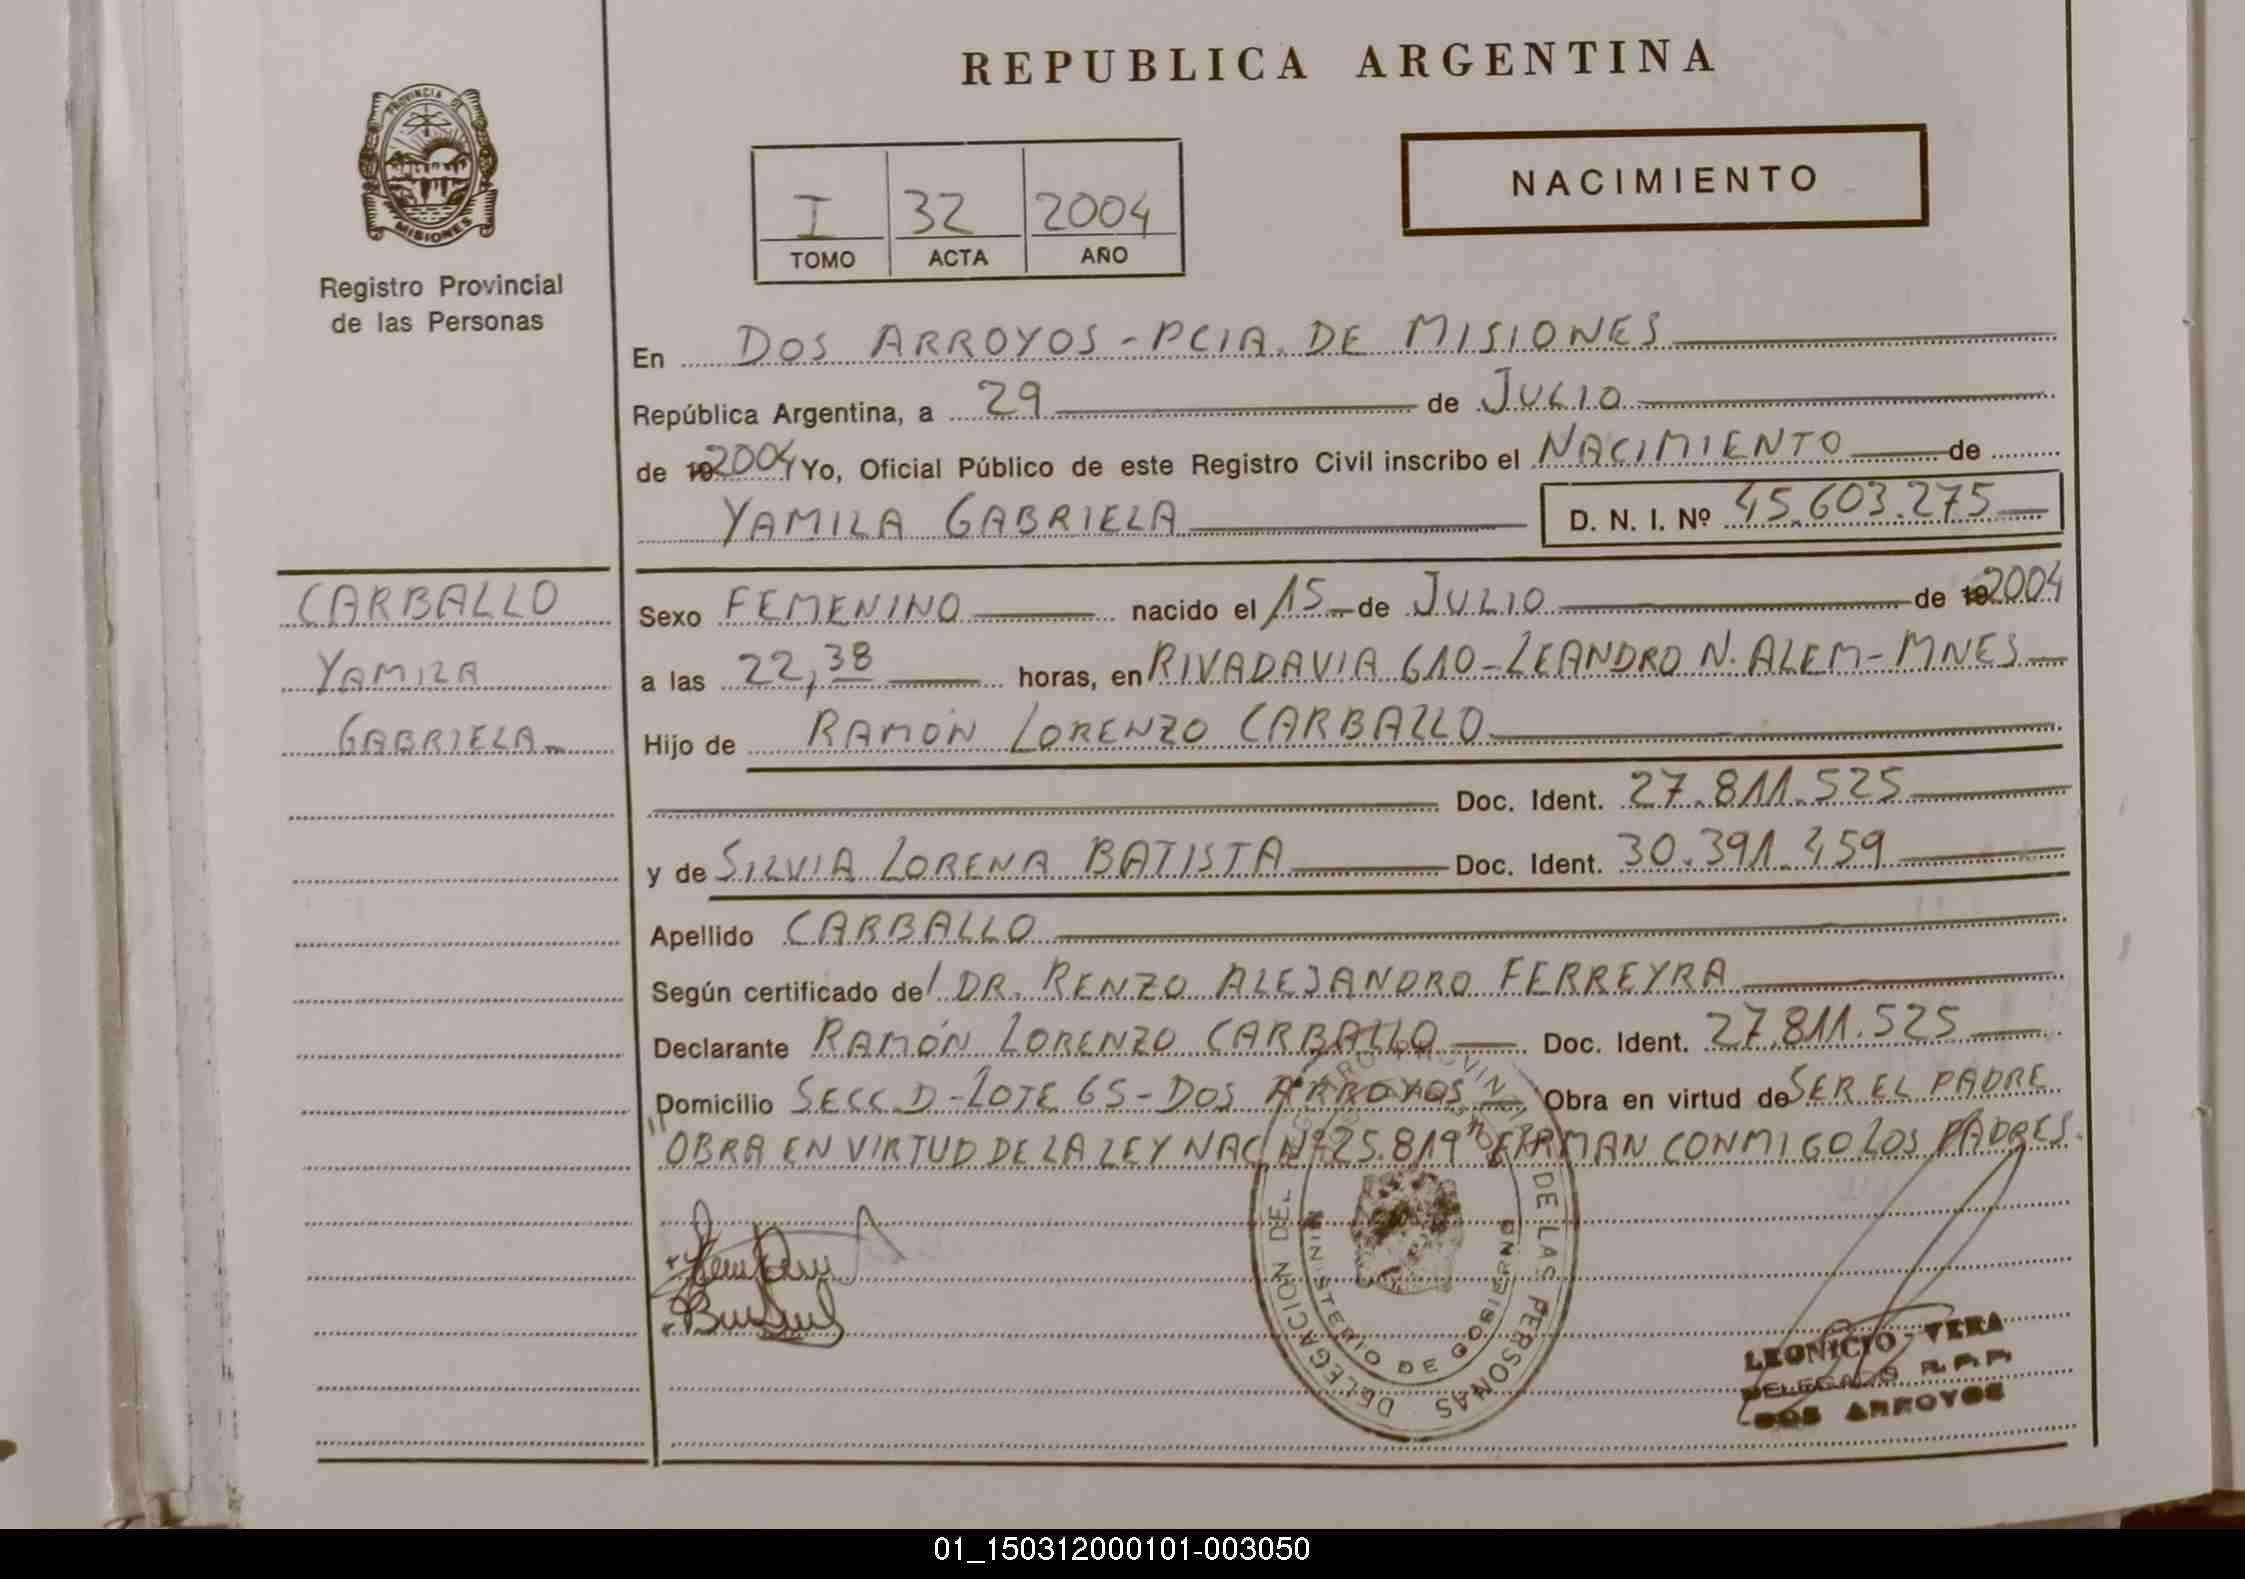 REPUBLICA ARGENTINA
PROVINCIA DE
MISIONES
Registro Provincial
de las Personas
I 32 2004
TOMO ACTA AÑO
NACIMIENTO
En DOS ARROYOS - PCIA. DE MISIONES
República Argentina, a 29 de JULIO
de 19 2004 Yo, Oficial Público de este Registro Civil inscribo el NACIMIENTO de
YAMILA GABRIELA D. N. I. Nº 45.603.275
CARBALLO
YAMILA
GABRIELA
Sexo FEMENINO nacido el 15 de JULIO de 19 2004
a las 22,38 horas, en RIVADAVIA 610 - LEANDRO N. ALEM - MNES
Hijo de RAMÓN LORENZO CARBALLO
Doc. Ident. 27.811.525
y de SILVIA LORENA BATISTA Doc. Ident. 30.391.459
Apellido CARBALLO
Según certificado de/ DR. RENZO ALEJANDRO FERREYRA
Declarante RAMÓN LORENZO CARBALLO Doc. Ident. 27.811.525
Domicilio SECC. D - LOTE 65 - DOS ARROYOS Obra en virtud de SER EL PADRE
"OBRA EN VIRTUD DE LA LEY NAC Nº 25.819" FIRMAN CONMIGO LOS PADRES.
DELEGACION DEL REGISTRO PROVINCIAL DE LAS PERSONAS
MINISTERIO DE GOBIERNO
LEONICIO VERA
DELEGADO R.P.P.
DOS ARROYOS
01_150312000101-003050